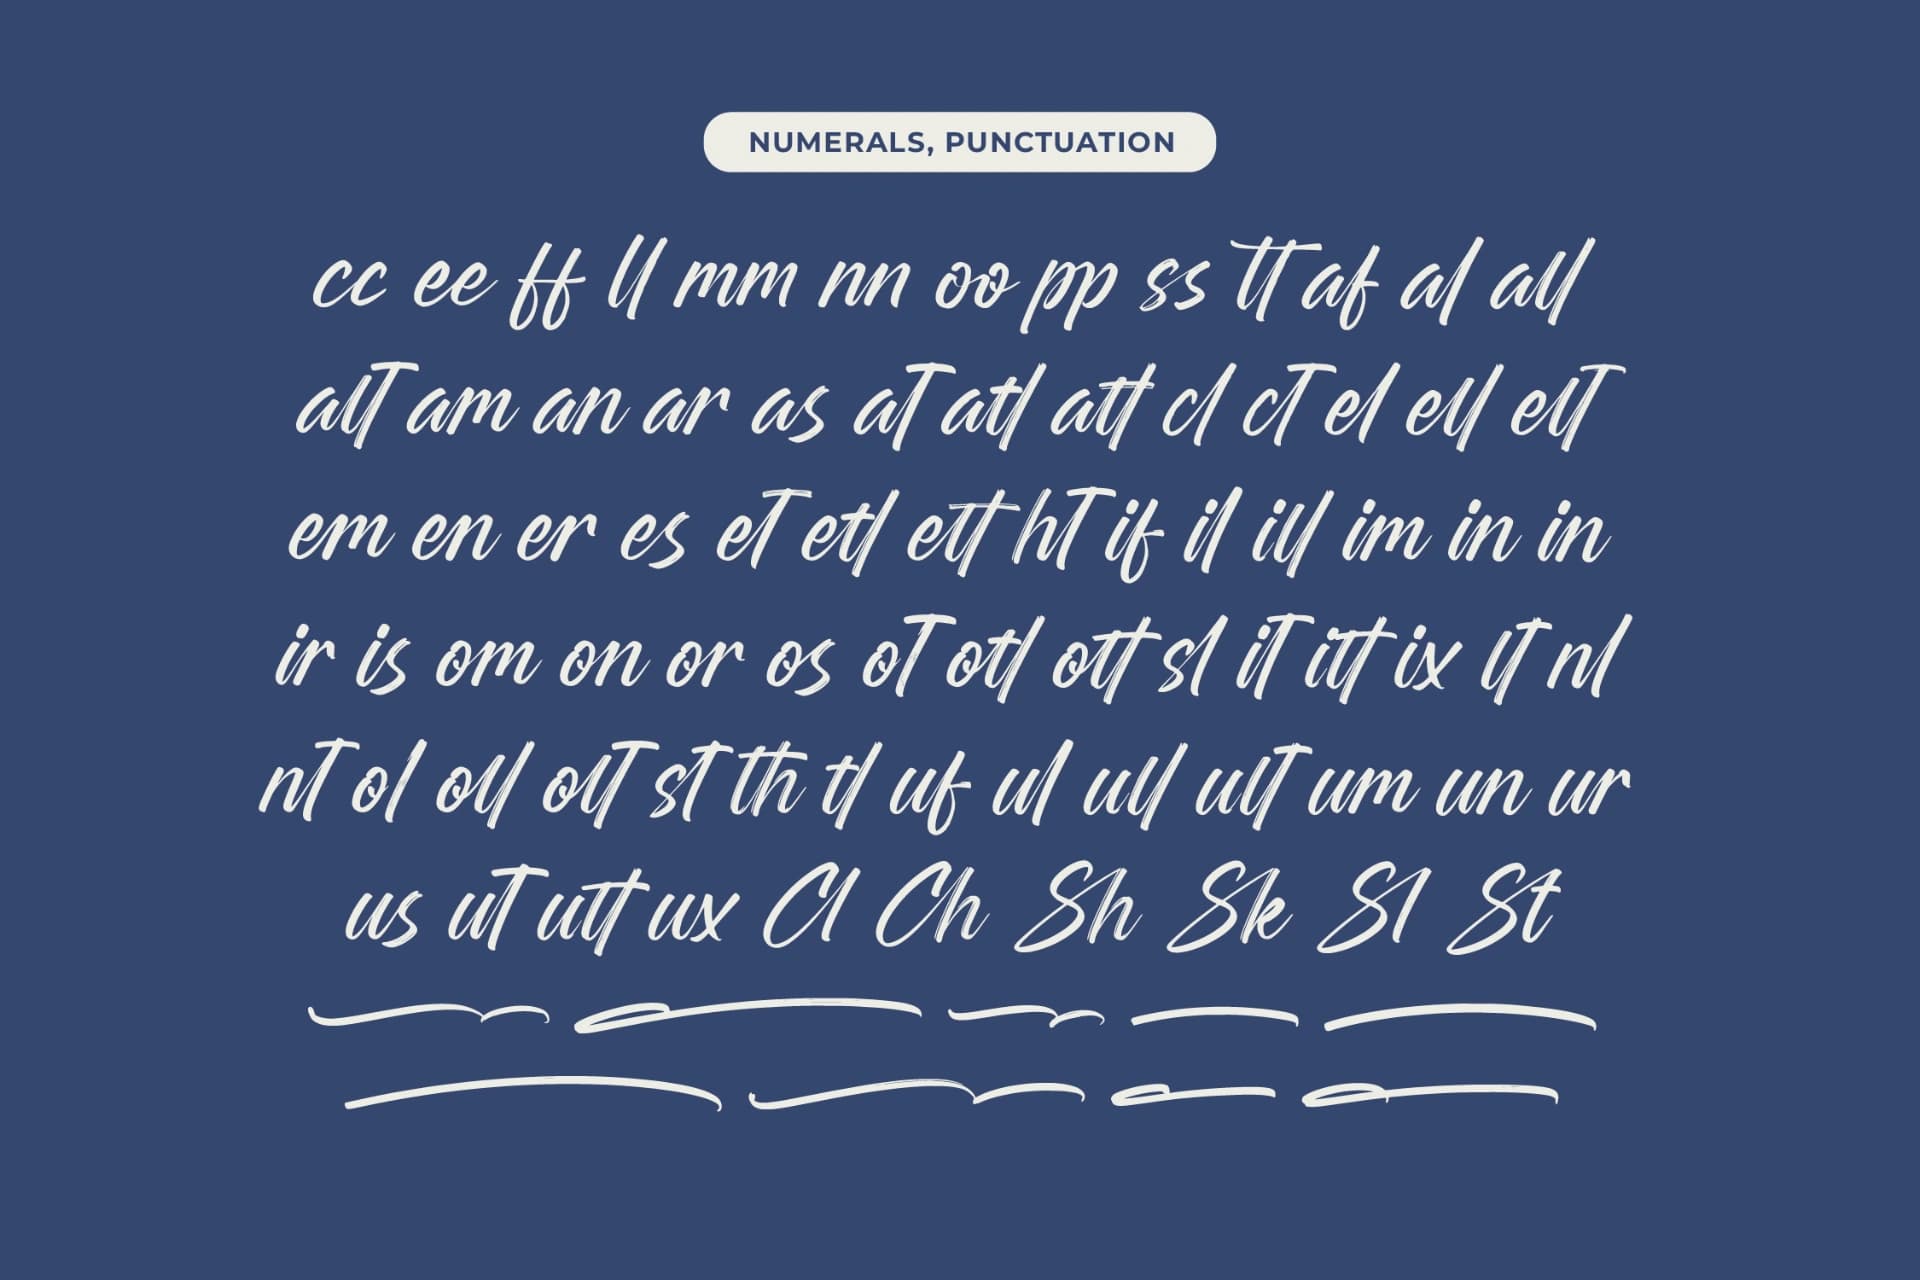 NUMERALS, PUNCTUATION
cc ee ff ll mm nn oo pp ss tt af al all
alt am an ar as at atl att cl ct el ell elt
em en er es et etl ett ht if il ill im in in
ir is om on or os ot otl ott sl it itt ix lt nl
nt ol oll olt st th tl uf ul ull ult um un ur
us ut utt ux Cl Ch Sh Sk Sl St